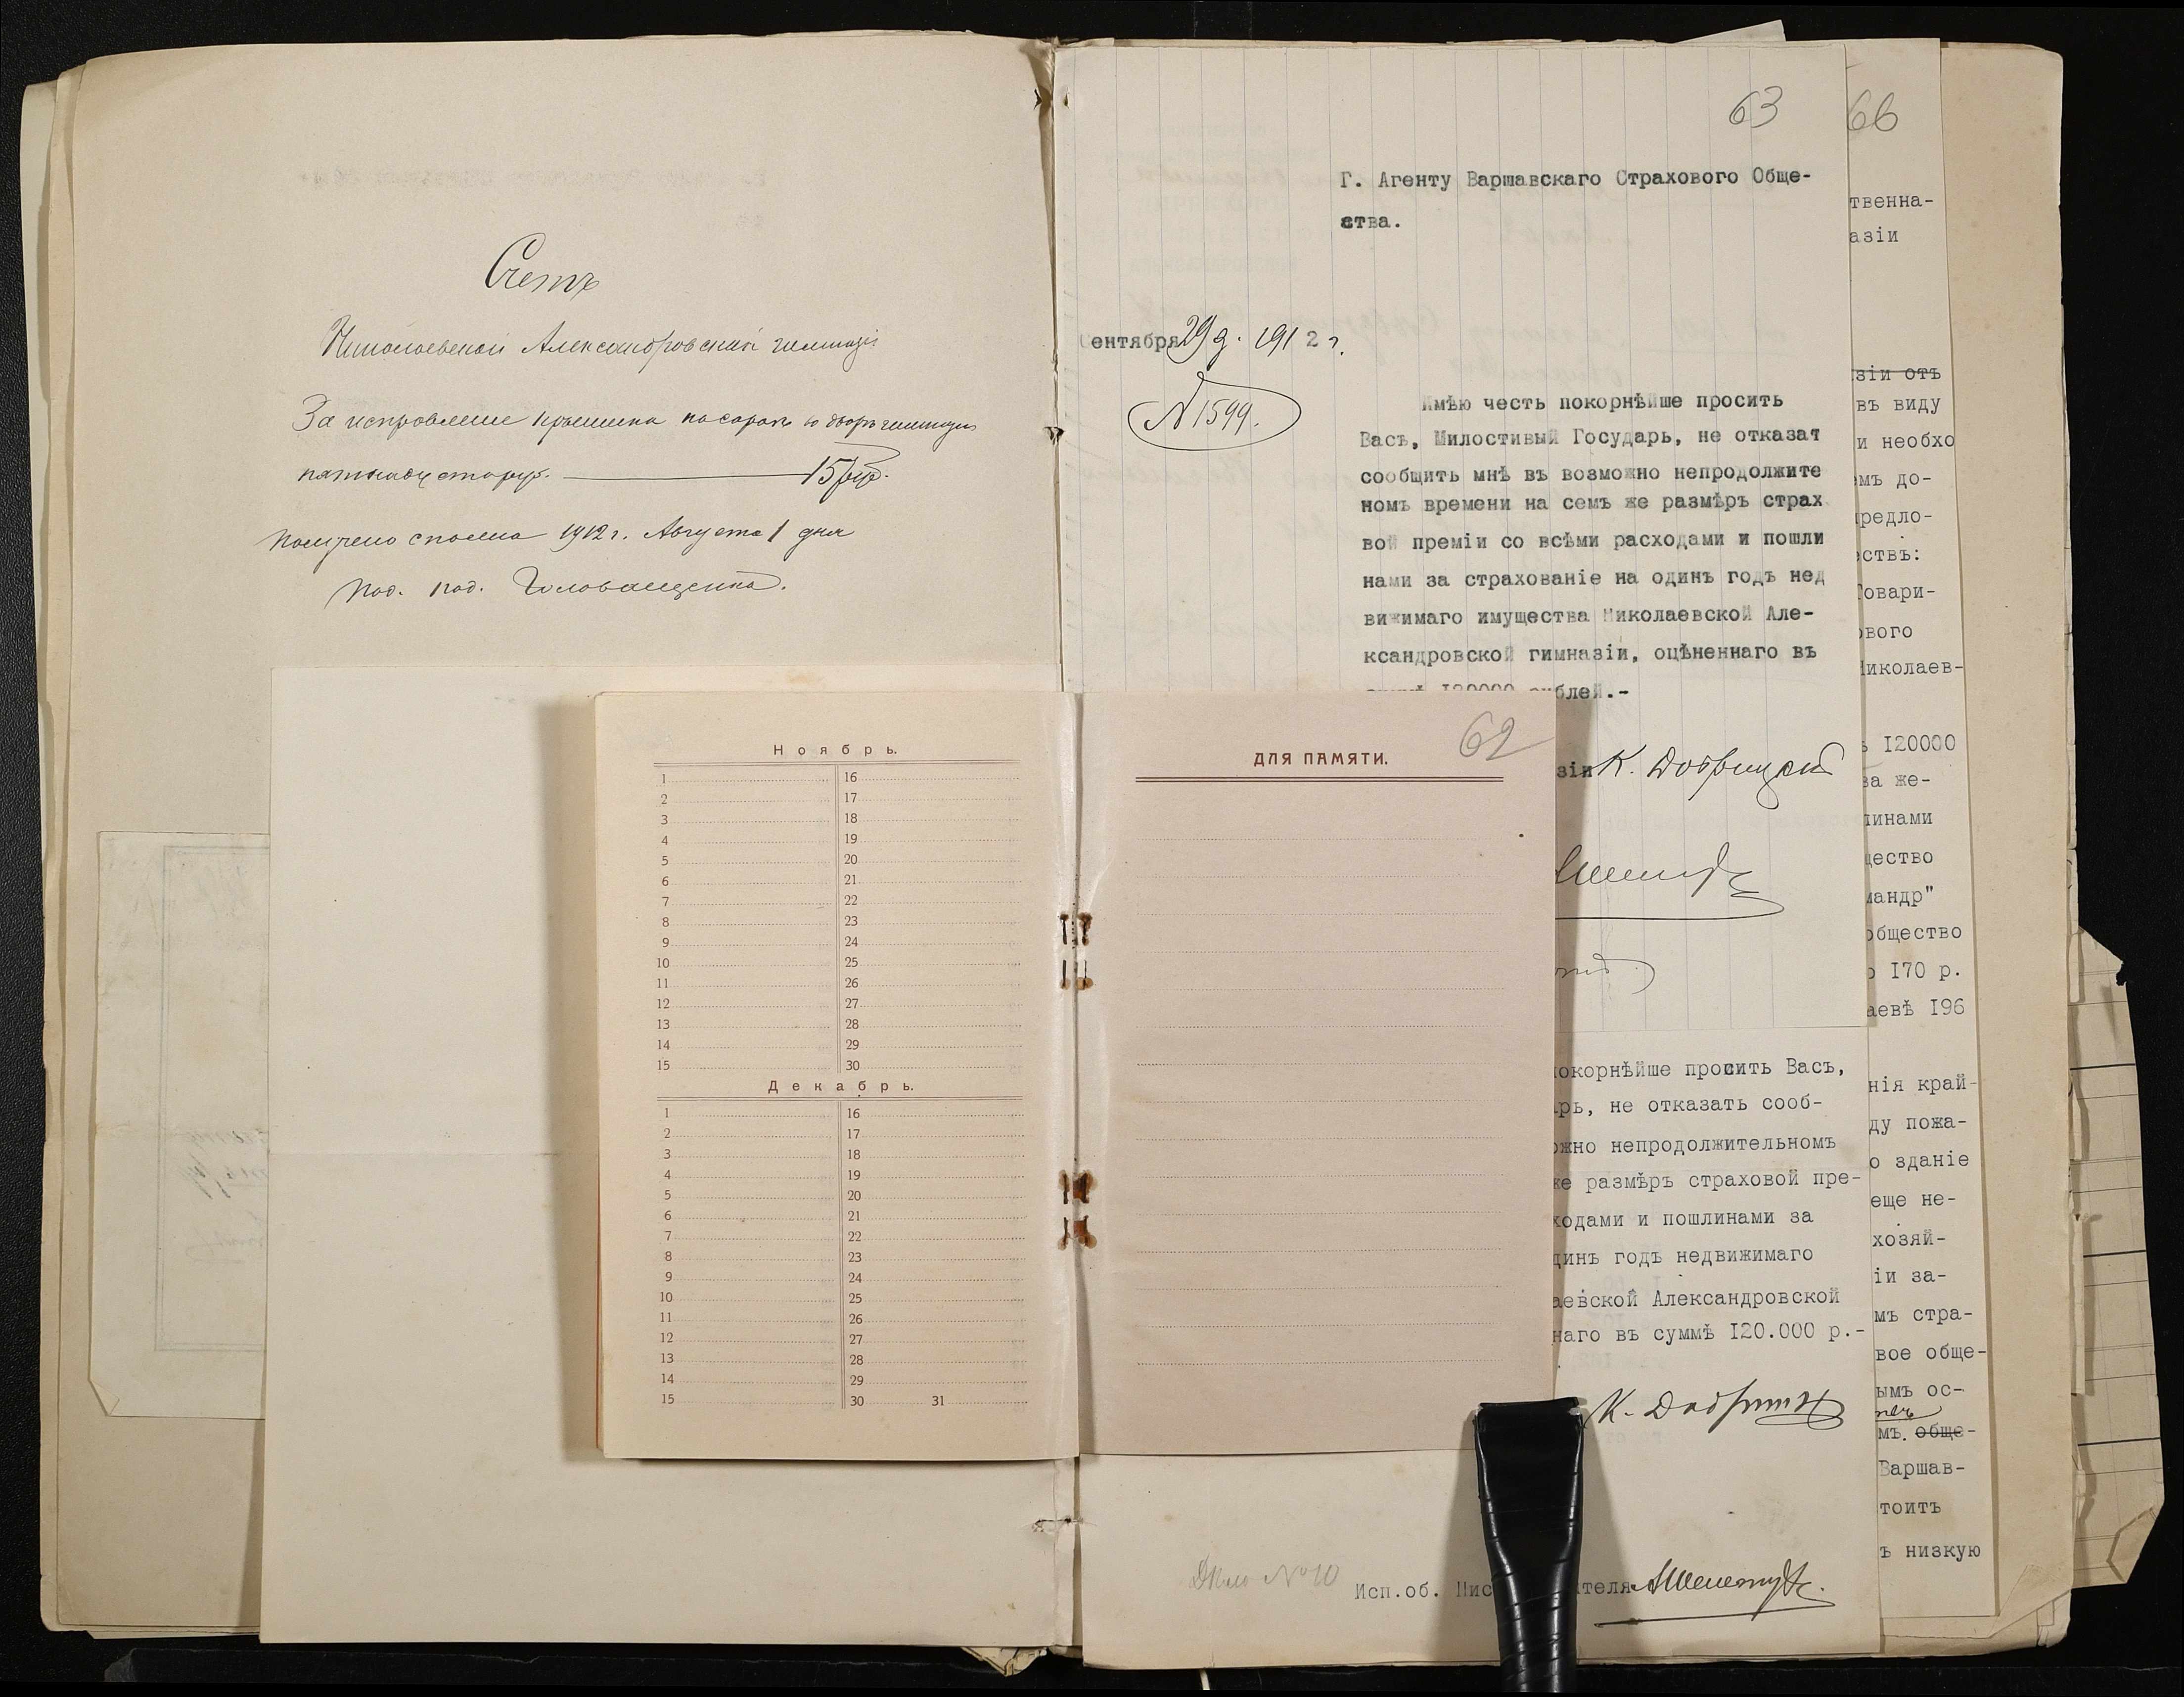 Счетъ
Николаевской Александровской гимназіи
За исправление крышика на сараяхъ во дворѣ гимназіи
пятнадцать руб. 15 руб.
Получено сполна 1912 г. Августа 1 дня
под. Головащенко.
63
Г. Агенту Варшавскаго Страхового Обще-
ства.
Сентября 29 д. 1912 г.
N 1599.
Имѣю честь покорнѣйше просить
Васъ, Милостивый Государь, не отказат
сообщить мнѣ въ возможно непродолжите
номъ времени на семъ же размѣръ страх
вой преміи со всѣми расходами и пошли
нами за страхованіе на одинъ годъ нед
вижимаго имущества Николаевской Але-
ксандровской гимназіи, оцѣненнаго въ
суммѣ I20000 рублей.-
зіи К. Добрицкій
66
твенна-
азіи
зіи отъ
въ виду
и необхо
мъ до-
редло-
ствъ:
Товари-
ового
Николаев-
I20000
ва же-
линами
щество
мандр"
общество
I70 р.
аевѣ I96
нія край-
ду пожа-
о зданіе
еще не-
хозяй-
іи за-
мъ стра-
вое обще-
ымъ ос-
мъ. обще-
Варшав-
тоитъ
ъ низкую
Ноябрь.
1 16
2 17
3 18
4 19
5 20
6 21
7 22
8 23
9 24
10 25
11 26
12 27
13 28
14 29
15 30
Декабрь.
1 16
2 17
3 18
4 19
5 20
6 21
7 22
8 23
9 24
10 25
11 26
12 27
13 28
14 29
15 30 31
62
ДЛЯ ПАМЯТИ.
покорнѣйше просить Васъ,
арь, не отказать сооб-
ожно непродолжительномъ
же размѣръ страховой пре-
ходами и пошлинами за
динъ годъ недвижимаго
аевской Александровской
наго въ суммѣ I20.000 р.-
К. Добрицкій
Дѣло № 10
Исп.об. Пис теля